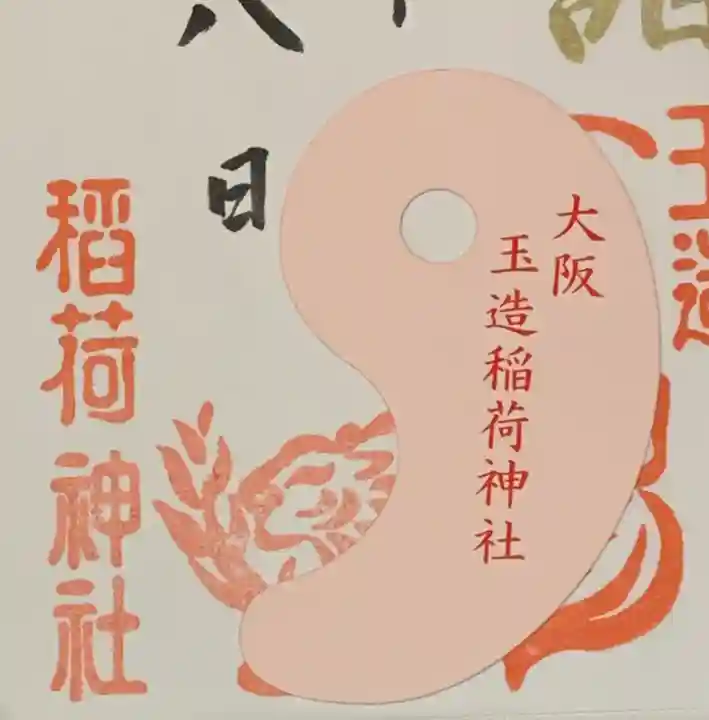 玉造
大阪
玉造稲荷神社
八
日
稲荷神社